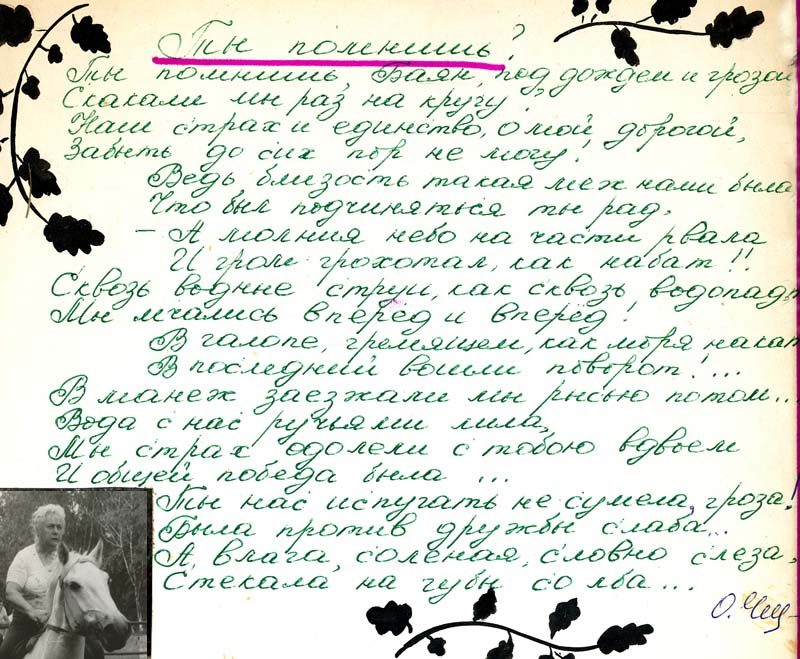 Ты помнишь?
Ты помнишь, Баян, под дождем и грозой
Скакали мы раз на кругу?
Наш страх и единство, о мой дорогой,
Забыть до сих пор не могу!
Ведь близость такая меж нами была
Что был подчиняться ты рад,
– А молния небо на части рвала
И гром грохотал, как набат!!
Сквозь водные струи, как сквозь водопад,
Мы мчались вперед и вперед!
В галопе, гремящем, как моря накат
В последний вошли поворот!...
В манеж заезжали мы рысью потом...
Вода с нас ручьями лила,
Мы страх одолели с тобою вдвоем
И общей победа была ...
Ты нас испугать не сумела, гроза!
Была против дружбы слаба...
А, влага, соленая, словно слеза,
Стекала на губы со лба...